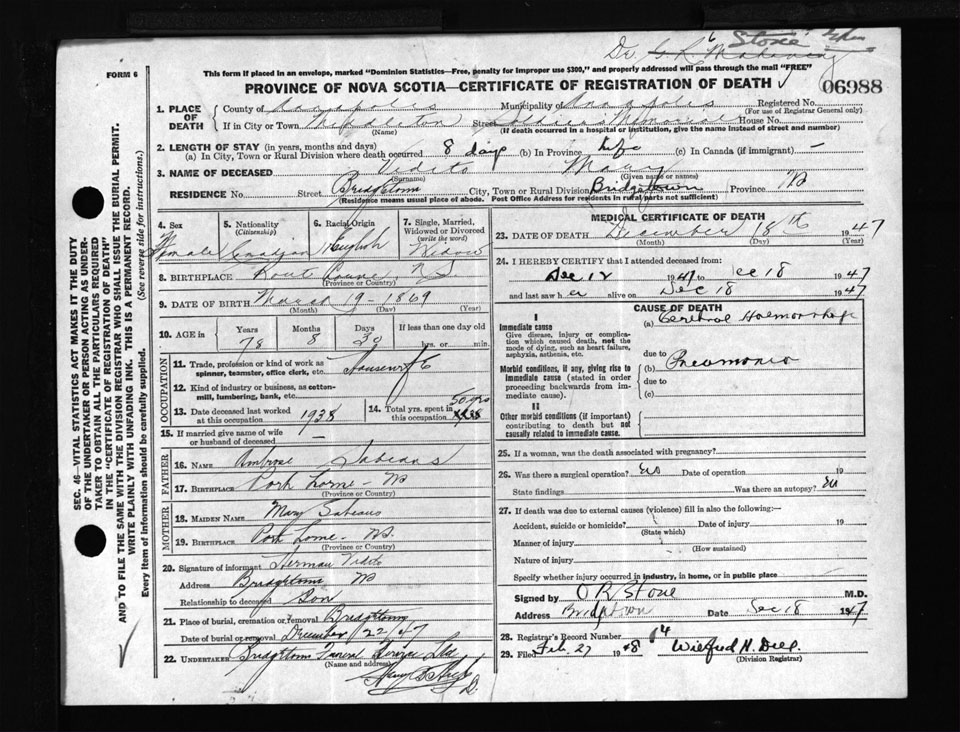 Dr Stone
FORM 6
This form if placed in an envelope, marked "Dominion Statistics—Free, penalty for improper use $300," and properly addressed will pass through the mail "FREE"
PROVINCE OF NOVA SCOTIA—CERTIFICATE OF REGISTRATION OF DEATH
06988
1. PLACE OF DEATH
County of Annapolis Municipality of Annapolis Registered No.
(For use of Registrar General only)
If in City or Town Middleton Street Soldiers Memorial House No.
(Name) (If death occurred in a hospital or institution, give the name instead of street and number)
2. LENGTH OF STAY (in years, months and days)
(a) In City, Town or Rural Division where death occurred 8 days (b) In Province Life (c) In Canada (if immigrant) —
3. NAME OF DECEASED Vidito Mary
(Surname) (Given name or names)
RESIDENCE No. Street Bridgetown City, Town or Rural Division Bridgetown Province NS
(Residence means usual place of abode. Post Office Address for residents in rural parts not sufficient)
4. Sex Female
5. Nationality (Citizenship) Canadian
6. Racial Origin English
7. Single, Married, Widowed or Divorced (write the word) Widow
8. BIRTHPLACE NS
(Province or Country)
9. DATE OF BIRTH March 19 - 1869
(Month) (Day) (Year)
10. AGE in Years 78 Months 8 Days If less than one day old hrs. or min.
OCCUPATION
11. Trade, profession or kind of work as spinner, teamster, office clerk, etc. Housewife
12. Kind of industry or business, as cotton-mill, lumbering, bank, etc.
13. Date deceased last worked at this occupation 1938
14. Total yrs. spent in this occupation 50 yrs
15. If married give name of wife or husband of deceased —
FATHER
16. NAME Ambrose Sabeans
17. BIRTHPLACE Port Lorne - NS
(Province or Country)
MOTHER
18. MAIDEN NAME Mary Sabeans
19. BIRTHPLACE Port Lorne - NS.
(Province or Country)
20. Signature of informant Herman Vidito
Address Bridgetown NS
Relationship to deceased Son
21. Place of burial, cremation or removal Bridgetown
Date of burial or removal December 22 47
22. UNDERTAKER Bridgetown Funeral Service Ltd
(Name and address)
MEDICAL CERTIFICATE OF DEATH
23. DATE OF DEATH December 18th 1947
(Month) (Day) (Year)
24. I HEREBY CERTIFY that I attended deceased from:
Dec 12 1947 to Dec 18 1947
and last saw her alive on Dec 18 1947
CAUSE OF DEATH
I
Immediate cause
Give disease, injury or complication which caused death, not the mode of dying, such as heart failure, asphyxia, asthenia, etc.
(a) Cerebral Haemorrhage
due to
Morbid conditions, if any, giving rise to immediate cause (stated in order proceeding backwards from immediate cause).
(b) Pneumonia
due to
(c)
II
Other morbid conditions (if important) contributing to death but not causally related to immediate cause.
25. If a woman, was the death associated with pregnancy?
26. Was there a surgical operation? no Date of operation 19
State findings Was there an autopsy? no
27. If death was due to external causes (violence) fill in also the following:—
Accident, suicide or homicide? Date of injury 19
(State which)
Manner of injury
(How sustained)
Nature of injury
Specify whether injury occurred in industry, in home, or in public place
Signed by O R Stone M.D.
Address Bridgetown Date Dec 18 1947
28. Registrar's Record Number 64
29. Filed Feb. 27 1948 Wilfred N.
(Division Registrar)
SEC. 46—VITAL STATISTICS ACT MAKES IT THE DUTY
OF THE UNDERTAKER OR PERSON ACTING AS UNDER-
TAKER TO OBTAIN ALL THE PARTICULARS REQUIRED
IN THE "CERTIFICATE OF REGISTRATION OF DEATH"
AND TO FILE THE SAME WITH THE DIVISION REGISTRAR WHO SHALL ISSUE THE BURIAL PERMIT.
WRITE PLAINLY WITH UNFADING INK. THIS IS A PERMANENT RECORD.
Every item of information should be carefully supplied. (See reverse side for instructions.)